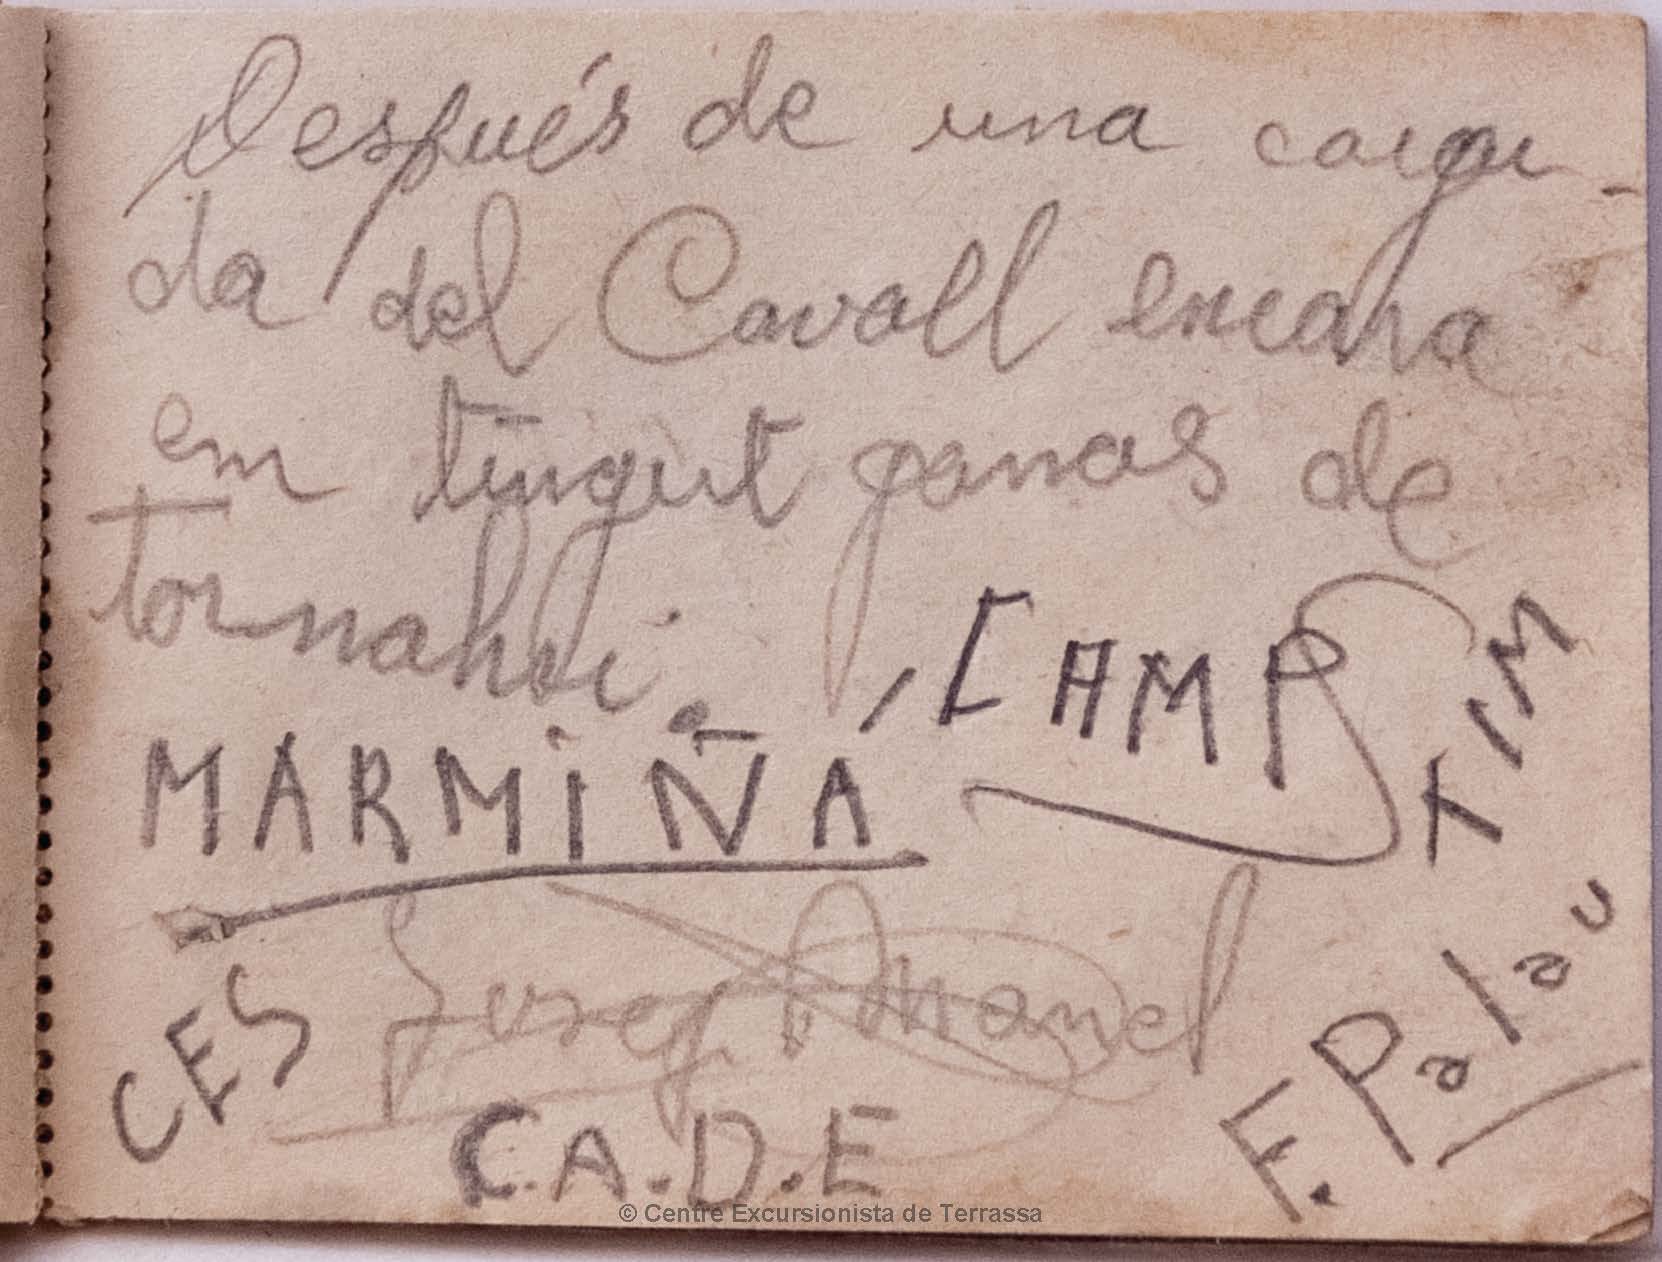 Después de una caigu-
da del Cavall encara
em tingut ganas de
tornahi.
MARMIÑÁ
CAMP
TIM
Josep Manel
CES
F. Palau
C.A.D.E
© Centre Excursionista de Terrassa